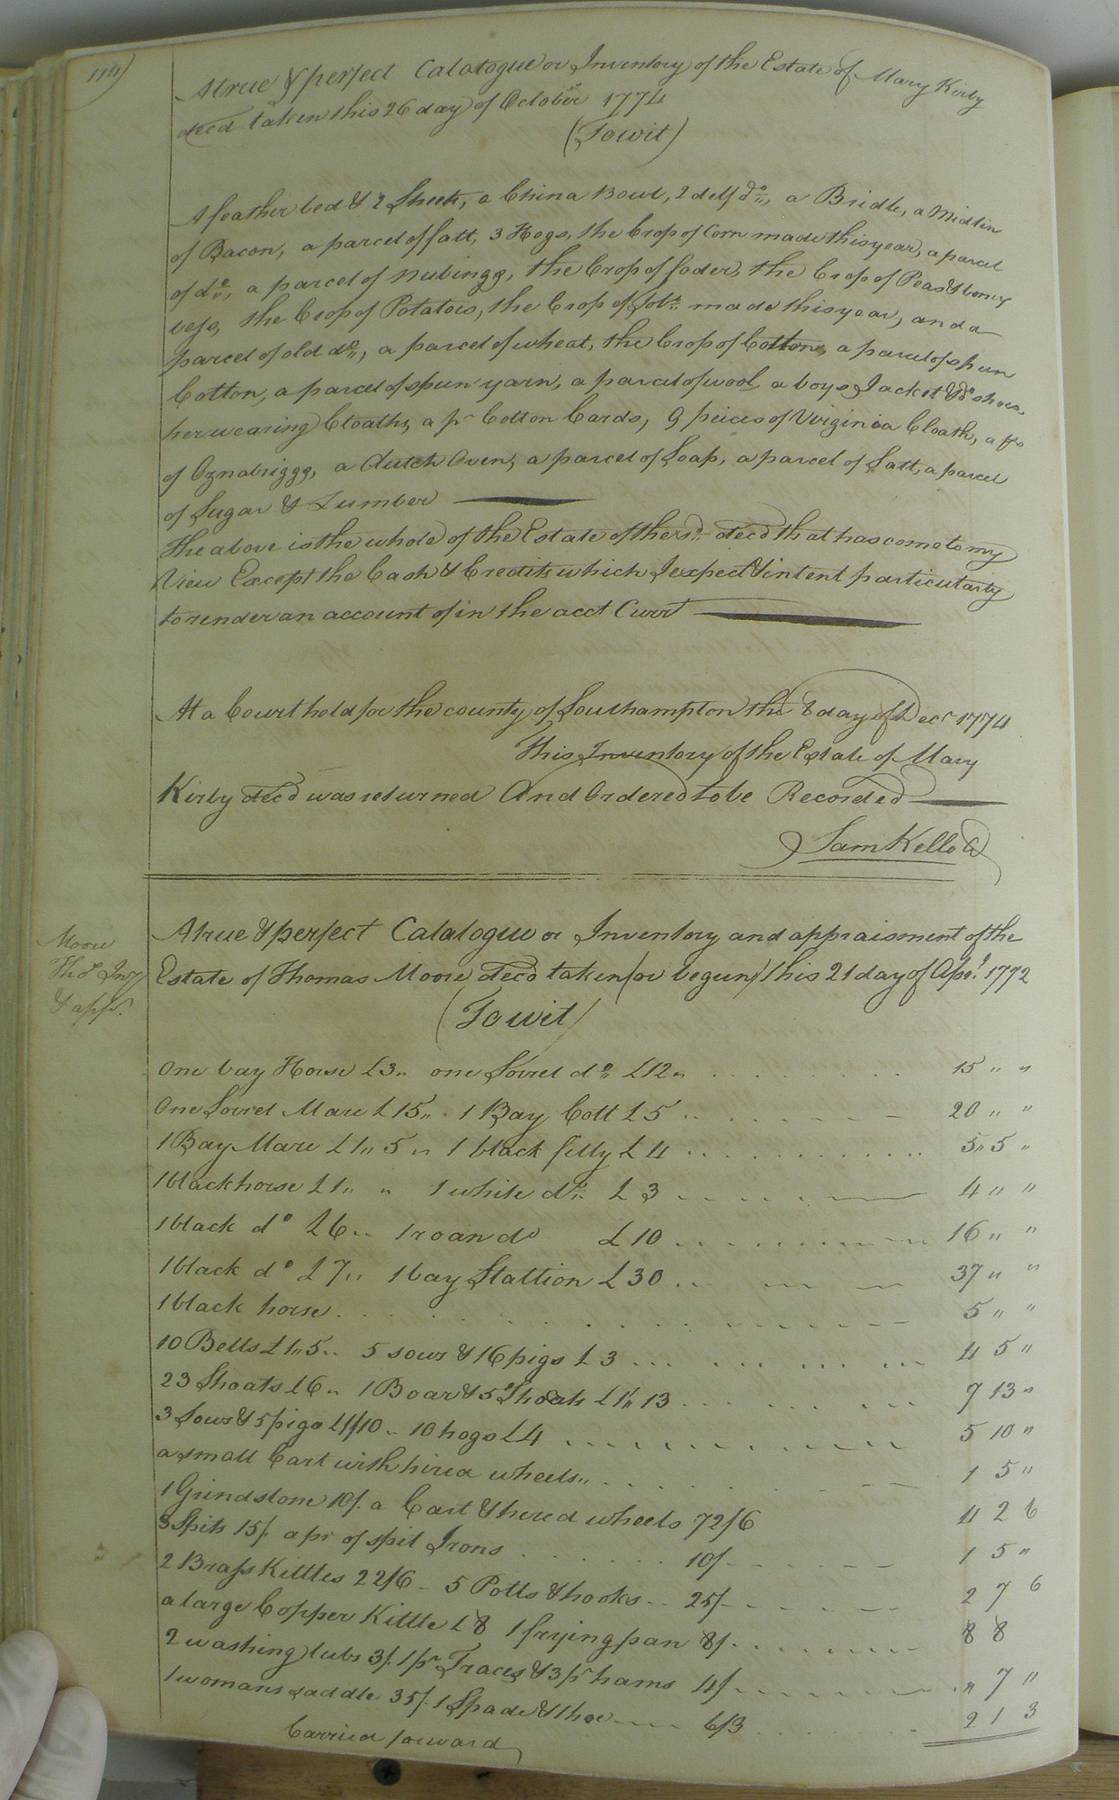 114)
A true & perfect Catalogue or Inventory of the Estate of Mary Kirby
decd taken this 26 day of October 1774
(Towit)
A feather bed & 2 Sheets, a China Bowl, 2 delf do,, a Bridle, a Midlin
of Bacon, a parcel of fatt, 3 Hogs, the Crop of Corn made this year, a parcel
of do,, a parcel of nubings, the Crop of foder, the Crop of Peas &
the Crop of Potatoes, the Crop of made this year, and a
parcel of old do,, a parcel of wheat, the Crop of Cotton, a parcel of spun
Cotton, a parcel of spun yarn, a parcel of wool a boys Jacket & do shoes,
her wearing Cloaths, a pr Cotton Cards, 9 peices of Virginia Cloath, a ps
of Oznabriggs, a dutch Oven, a parcel of Soap, a parcel of Salt, a parcel
of Sugar & Lumber
The above is the whole of the Estate of the sd. decd that has come to my
View Except the Cash & Credits which I expect & intent particularly
to render an account of in the acct Currt
At a Court held for the county of Southampton the 8 day of Decr 1774
This Inventory of the Estate of Mary
Kirby decd was returned And Ordered to be Recorded
Sam Kello
Moore
Thos Invy
& appt.
A true & perfect Catalogue or Inventory and appraisment of the
Estate of Thomas Moore decd taken (or begun) this 21 day of Apr.l 1772
(Towit)
One bay Horse £3,, one Sorrel do,, £12,, 15 ,, ,,
One Sorrel Mare £15,, 1 Bay Colt £5 20 ,, ,,
1 Bay Mare £1,, 5 ,, 1 black filly £4 5,, 5 ,,
1 black horse £1 ,, ,, 1 white do,, £3 4 ,, ,,
1 black do £6 ,, 1 roan do £10 16 ,, ,,
1 black do £7 ,, 1 bay Stallion £30 37 ,, ,,
1 black horse 5 ,, ,,
10 Bells £1,,5 ,, 5 sows & 16 pigs £3 4 5 ,,
23 Shoats £6 ,, 1 Boar & 5 Shoats £1,, 13 7 13 ,,
3 Sows & 5 pigs £1//10 ,, 10 hogs £4 5 10 ,,
a small Cart with hired wheels ,, 1 5 ,,
1 Grindstone 10/. a Cart & hered wheels 72/6 4 2 6
3 Spits 15/. a pr of spit Irons 10/ 1 5 ,,
2 Brass Kittles 22/6 5 Potts & hooks 25/ 2 7 6
a large Copper Kittle £8 1 frying pan 8/. 8 8
2 washing tubs 3/. 1 pr Traces & 3 pr hams 4/ ,, 7 ,,
1 womans saddle 35/. 1 Spade & hoe 6/3 2 1 3
Carried forward